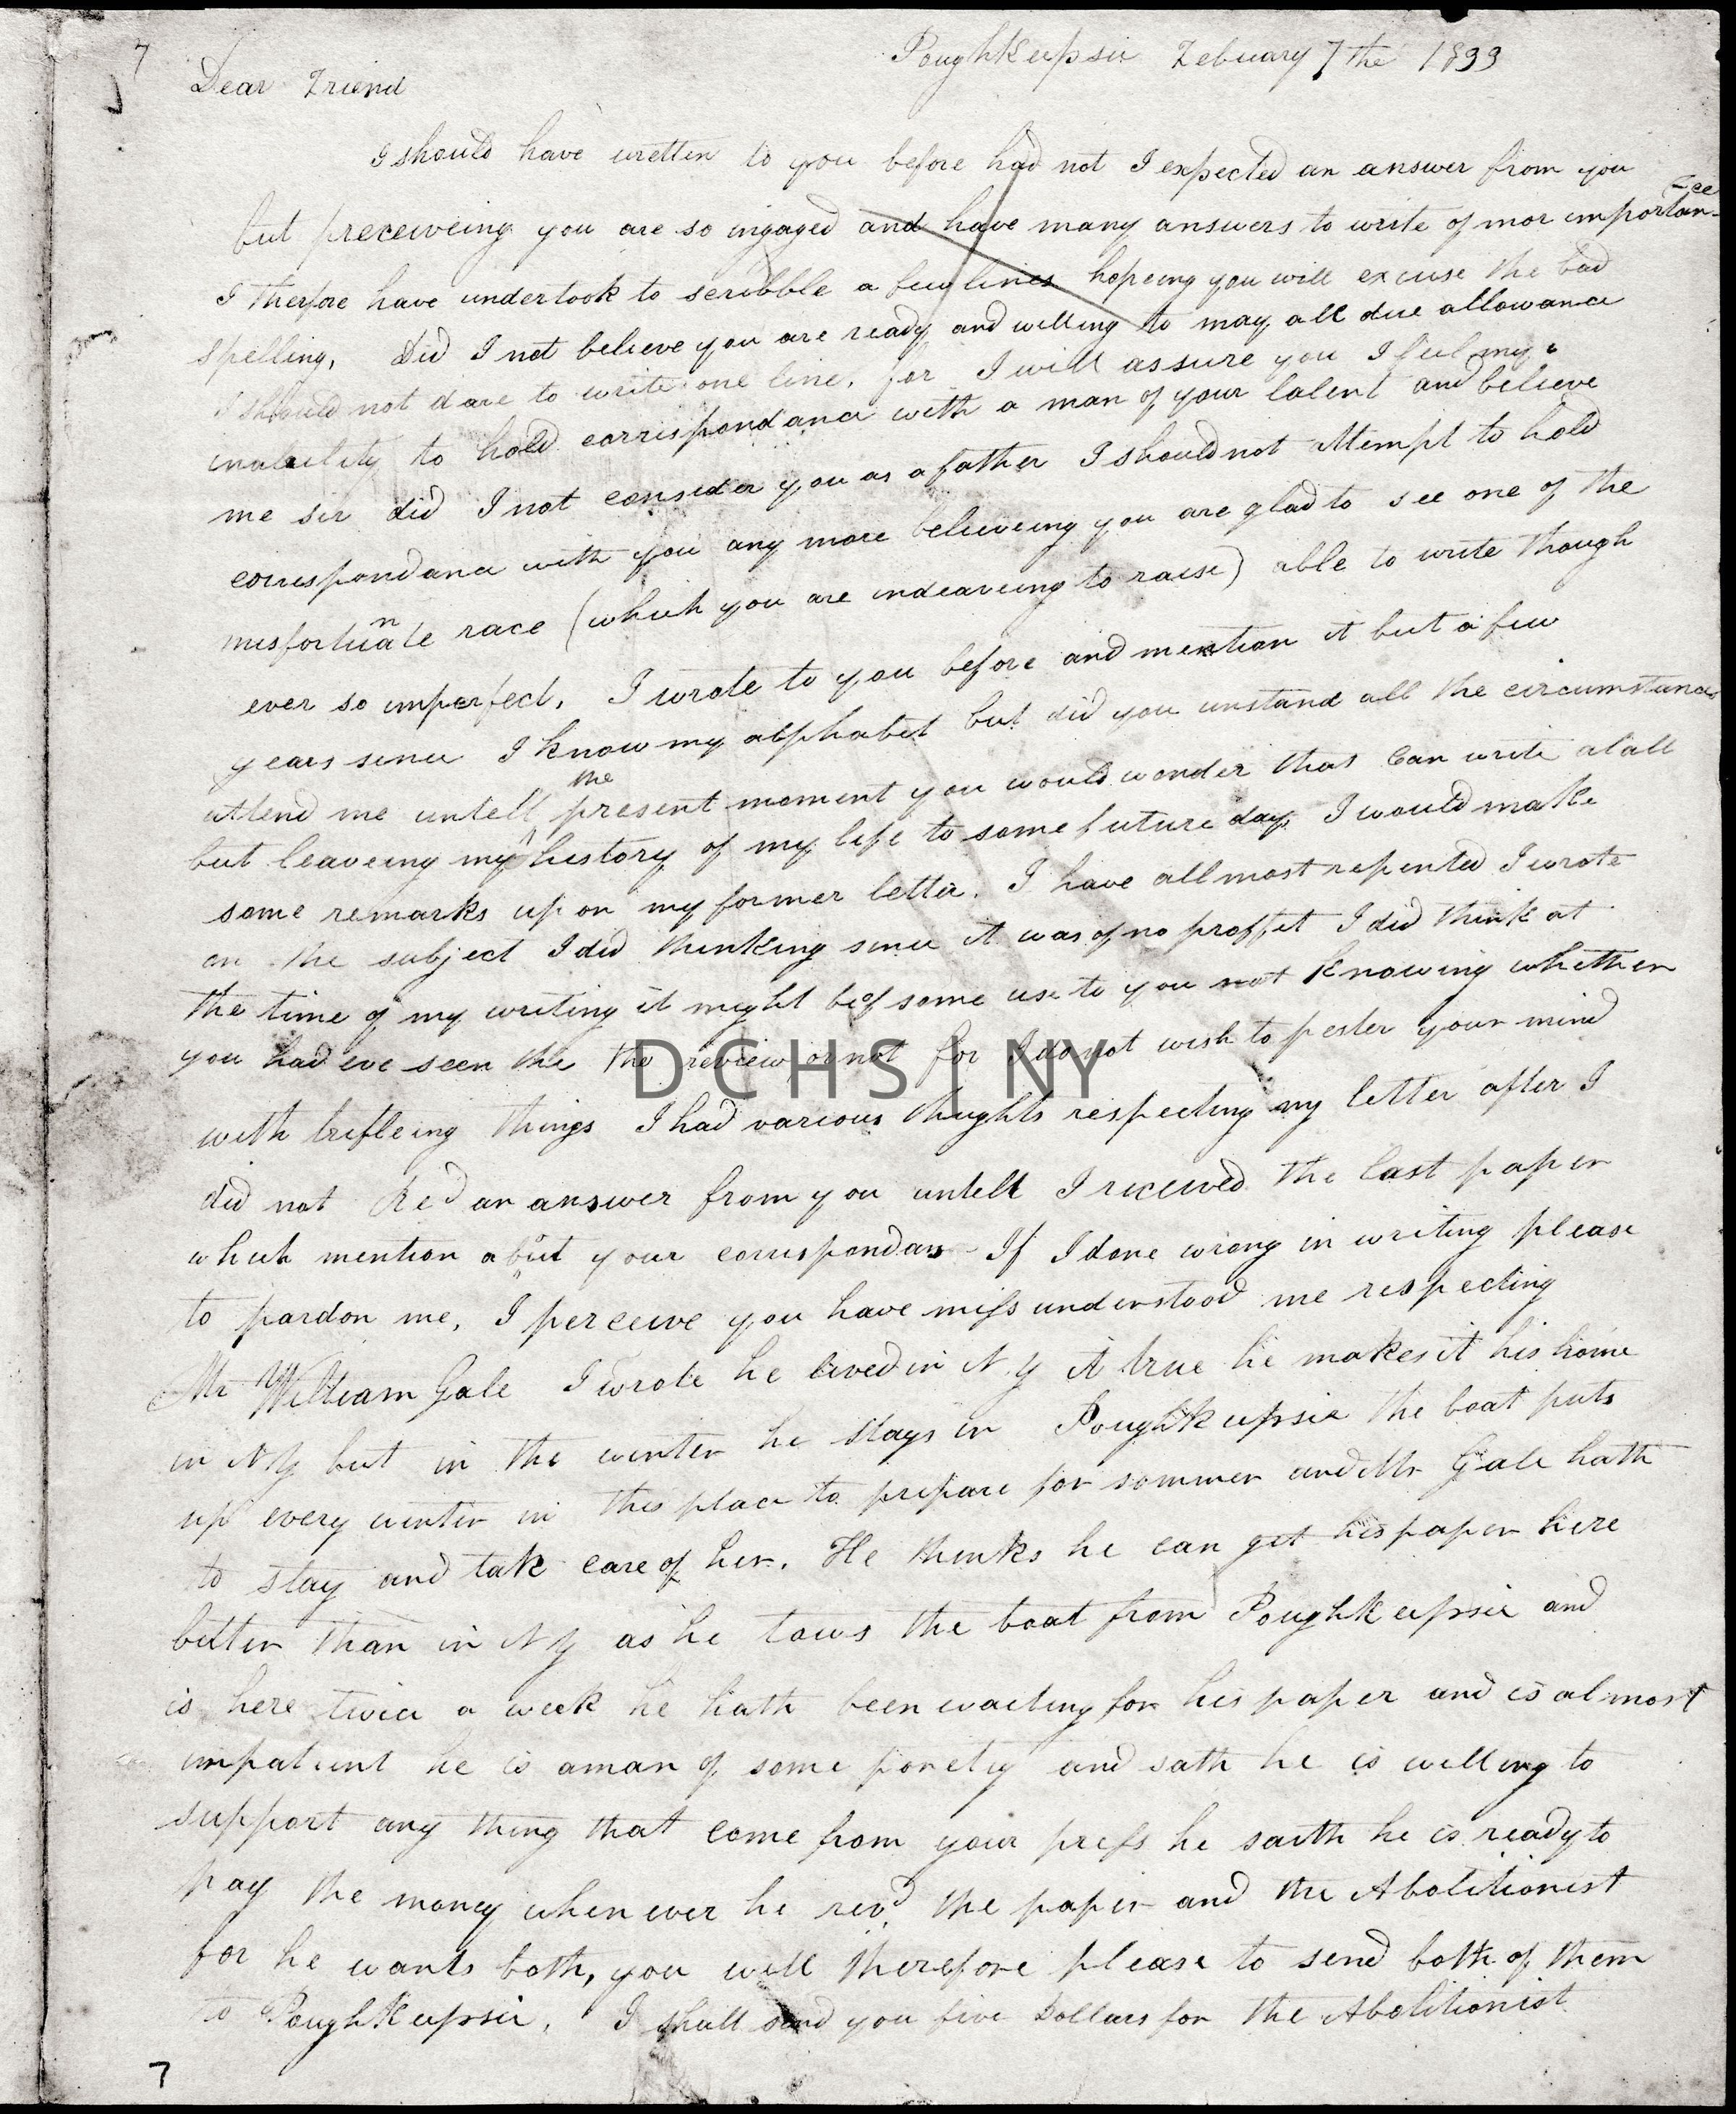 7
Poughkeepsie Febuary 7 the 1833
Dear Friend
I should have wretten to you before had not I expected an answer from you
but preceiveing you are so ingaged and have many answers to write of mor importance
I therfore have undertook to scribble a few lines hopeing you will excuse the bad
spelling, Did I not believe you are ready and willing to may all due allowance
I should not dare to write one line, for I will assure you I feel my
inability to hold corrispondance with a man of your talent and believe
me sir did I not consider you as a father I should not attempt to hold
corrispondance with you any more believeing you are glad to see one of the
misfortunate race (which you are indeaveing to raise) able to write though
ever so imperfect, I wrote to you before and mention it but a few
years since I know my alphabet but did you unstand all the circumstances
attend me untell the present moment you would wonder that can write atall
but leaveing my history of my life to some future day I would make
some remarks upon my former letter. I have allmost repented I wrote
on the subject I did thinking since it was of no proffet I did think at
the time of my writing it might be of some use to you not knowing whether
you had eve seen the the review or not for I do not wish to pester your mind
DCHS | NY
with trifleing things I had various thughts respecting my letter after I
did not Red an answer from you untell I received the last paper
which mention about your corrispondans If I done wrong in writing please
to pardon me, I perceive you have miss understood me respecting
Mr William Gale I wrote he lived in N.Y it true he makes it his home
in N Y but in the winter he stays in Poughkeepsie the boat puts
up every winter in this place to prepare for sommer and Mr Gale hath
to stay and take care of her. He thinks he can get his paper here
better than in N Y as he tows the boat from Poughkeepsie and
is here twice a week he hath been waiting for his paper and is almost
impatient he is a man of some porety and sath he is willing to
support any thing that come from your press he saith he is ready to
pay the money when ever he revd the paper and the Abolitionist
for he wants both, you will therefore please to send both of them
to Poughkeepsie, I shall send you five Dollars for the Abolitionist
7